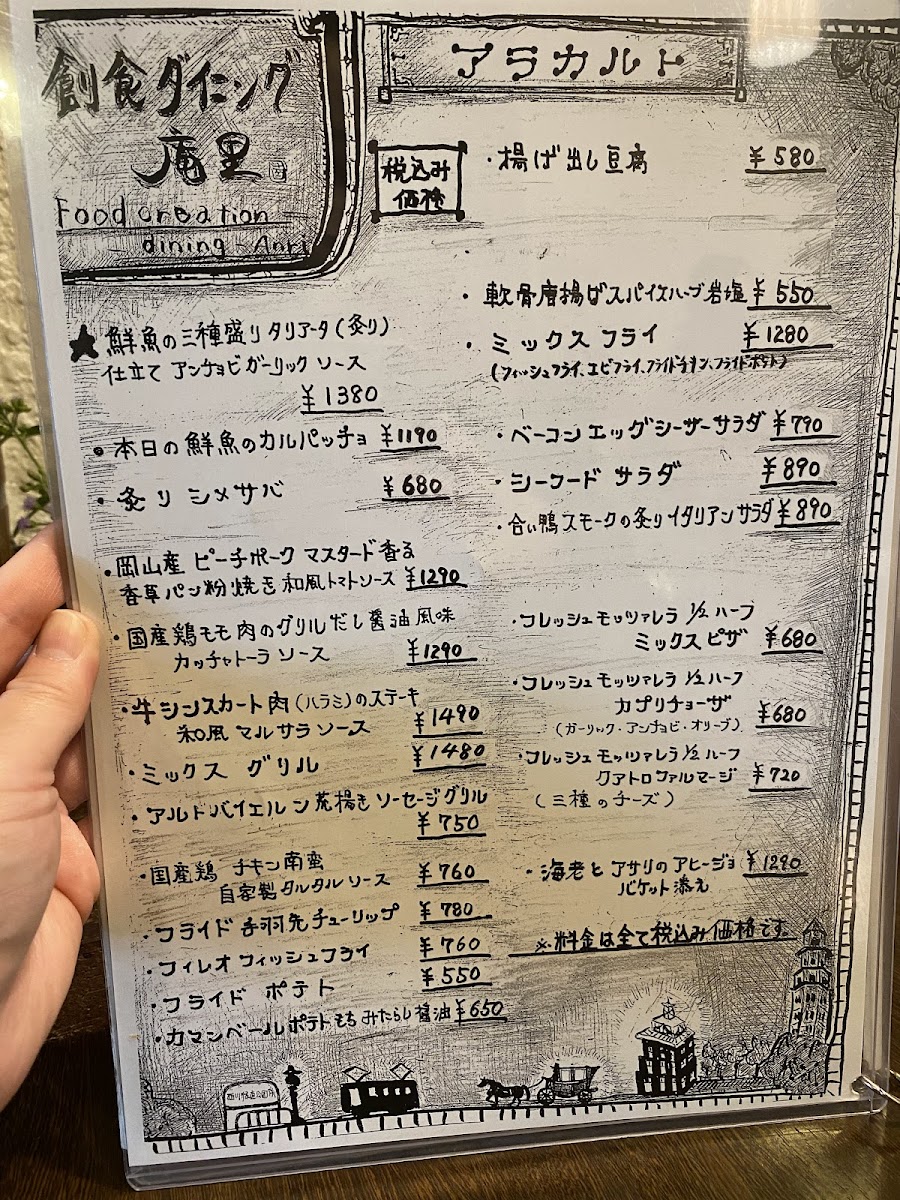 創食ダイニング
庵里
Food creation
dining Anri
アラカルト
税込み
価格
・揚げ出し豆腐 ¥580
・軟骨唐揚げスパイスハーブ岩塩 ¥550
・ミックスフライ ¥1280
(フィッシュフライ、エビフライ、フライドチキン、フライドポテト)
・ベーコンエッグシーザーサラダ ¥790
・シーフードサラダ ¥890
・合い鴨スモークの炙りイタリアンサラダ ¥890
・フレッシュモッツァレラ 1/2 ハーフ
ミックスピザ ¥680
・フレッシュモッツァレラ 1/2 ハーフ
カプリチョーザ ¥680
(ガーリック・アンチョビ・オリーブ)
・フレッシュモッツァレラ 1/2 ハーフ
クアトロファルマージ ¥720
(三種のチーズ)
・海老とアサリのアヒージョ ¥1290
バケット添え
※料金は全て税込み価格です。
★鮮魚の三種盛りタリアータ(炙り)
仕立て アンチョビガーリックソース
¥1380
・本日の鮮魚のカルパッチョ ¥1190
・炙りシメサバ ¥680
・岡山産 ピーチポーク マスタード香る
香草パン粉焼き 和風トマトソース ¥1290
・国産鶏モモ肉のグリルだし醤油風味
カッチャトーラソース ¥1290
・牛シンスカート肉(ハラミ)のステーキ
和風マルサラソース ¥1490
・ミックスグリル ¥1480
・アルトバイエルン荒挽きソーセージグリル
¥750
・国産鶏 チキン南蛮
自家製タルタルソース ¥760
・フライド手羽先チューリップ ¥780
・フィレオフィッシュフライ ¥760
・フライドポテト ¥550
・カマンベールポテトもち みたらし醤油 ¥650